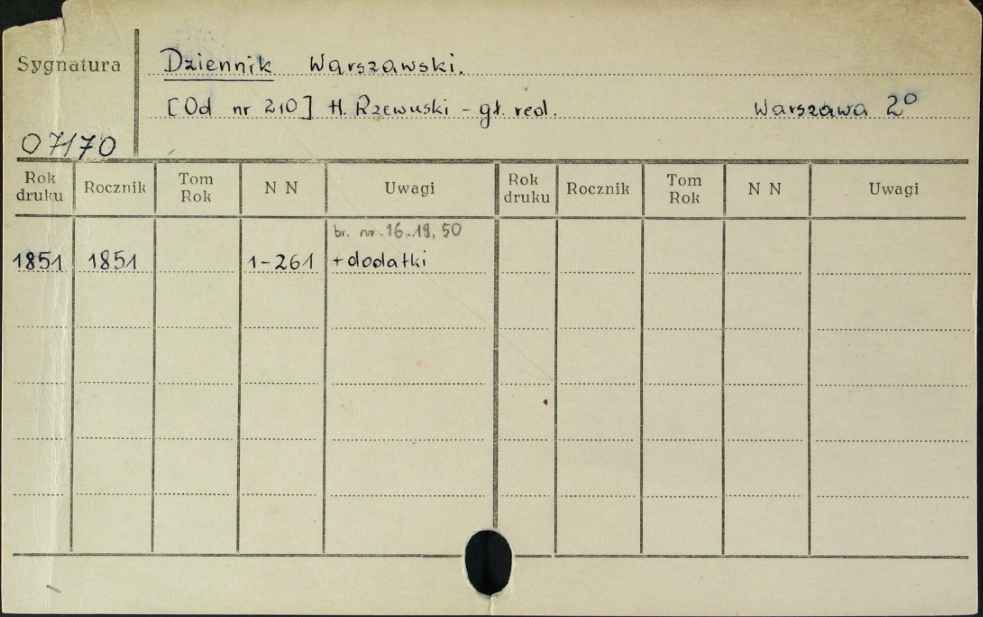 Sygnatura Dziennik Warszawski.
[Od nr 210] H. Rzewuski - gł. red. Warszawa 2º
07170
Rok druku Rocznik Tom Rok N N Uwagi Rok druku Rocznik Tom Rok N N Uwagi
br. nr. 16-18, 50
1851 1851 1-261 + dodatki